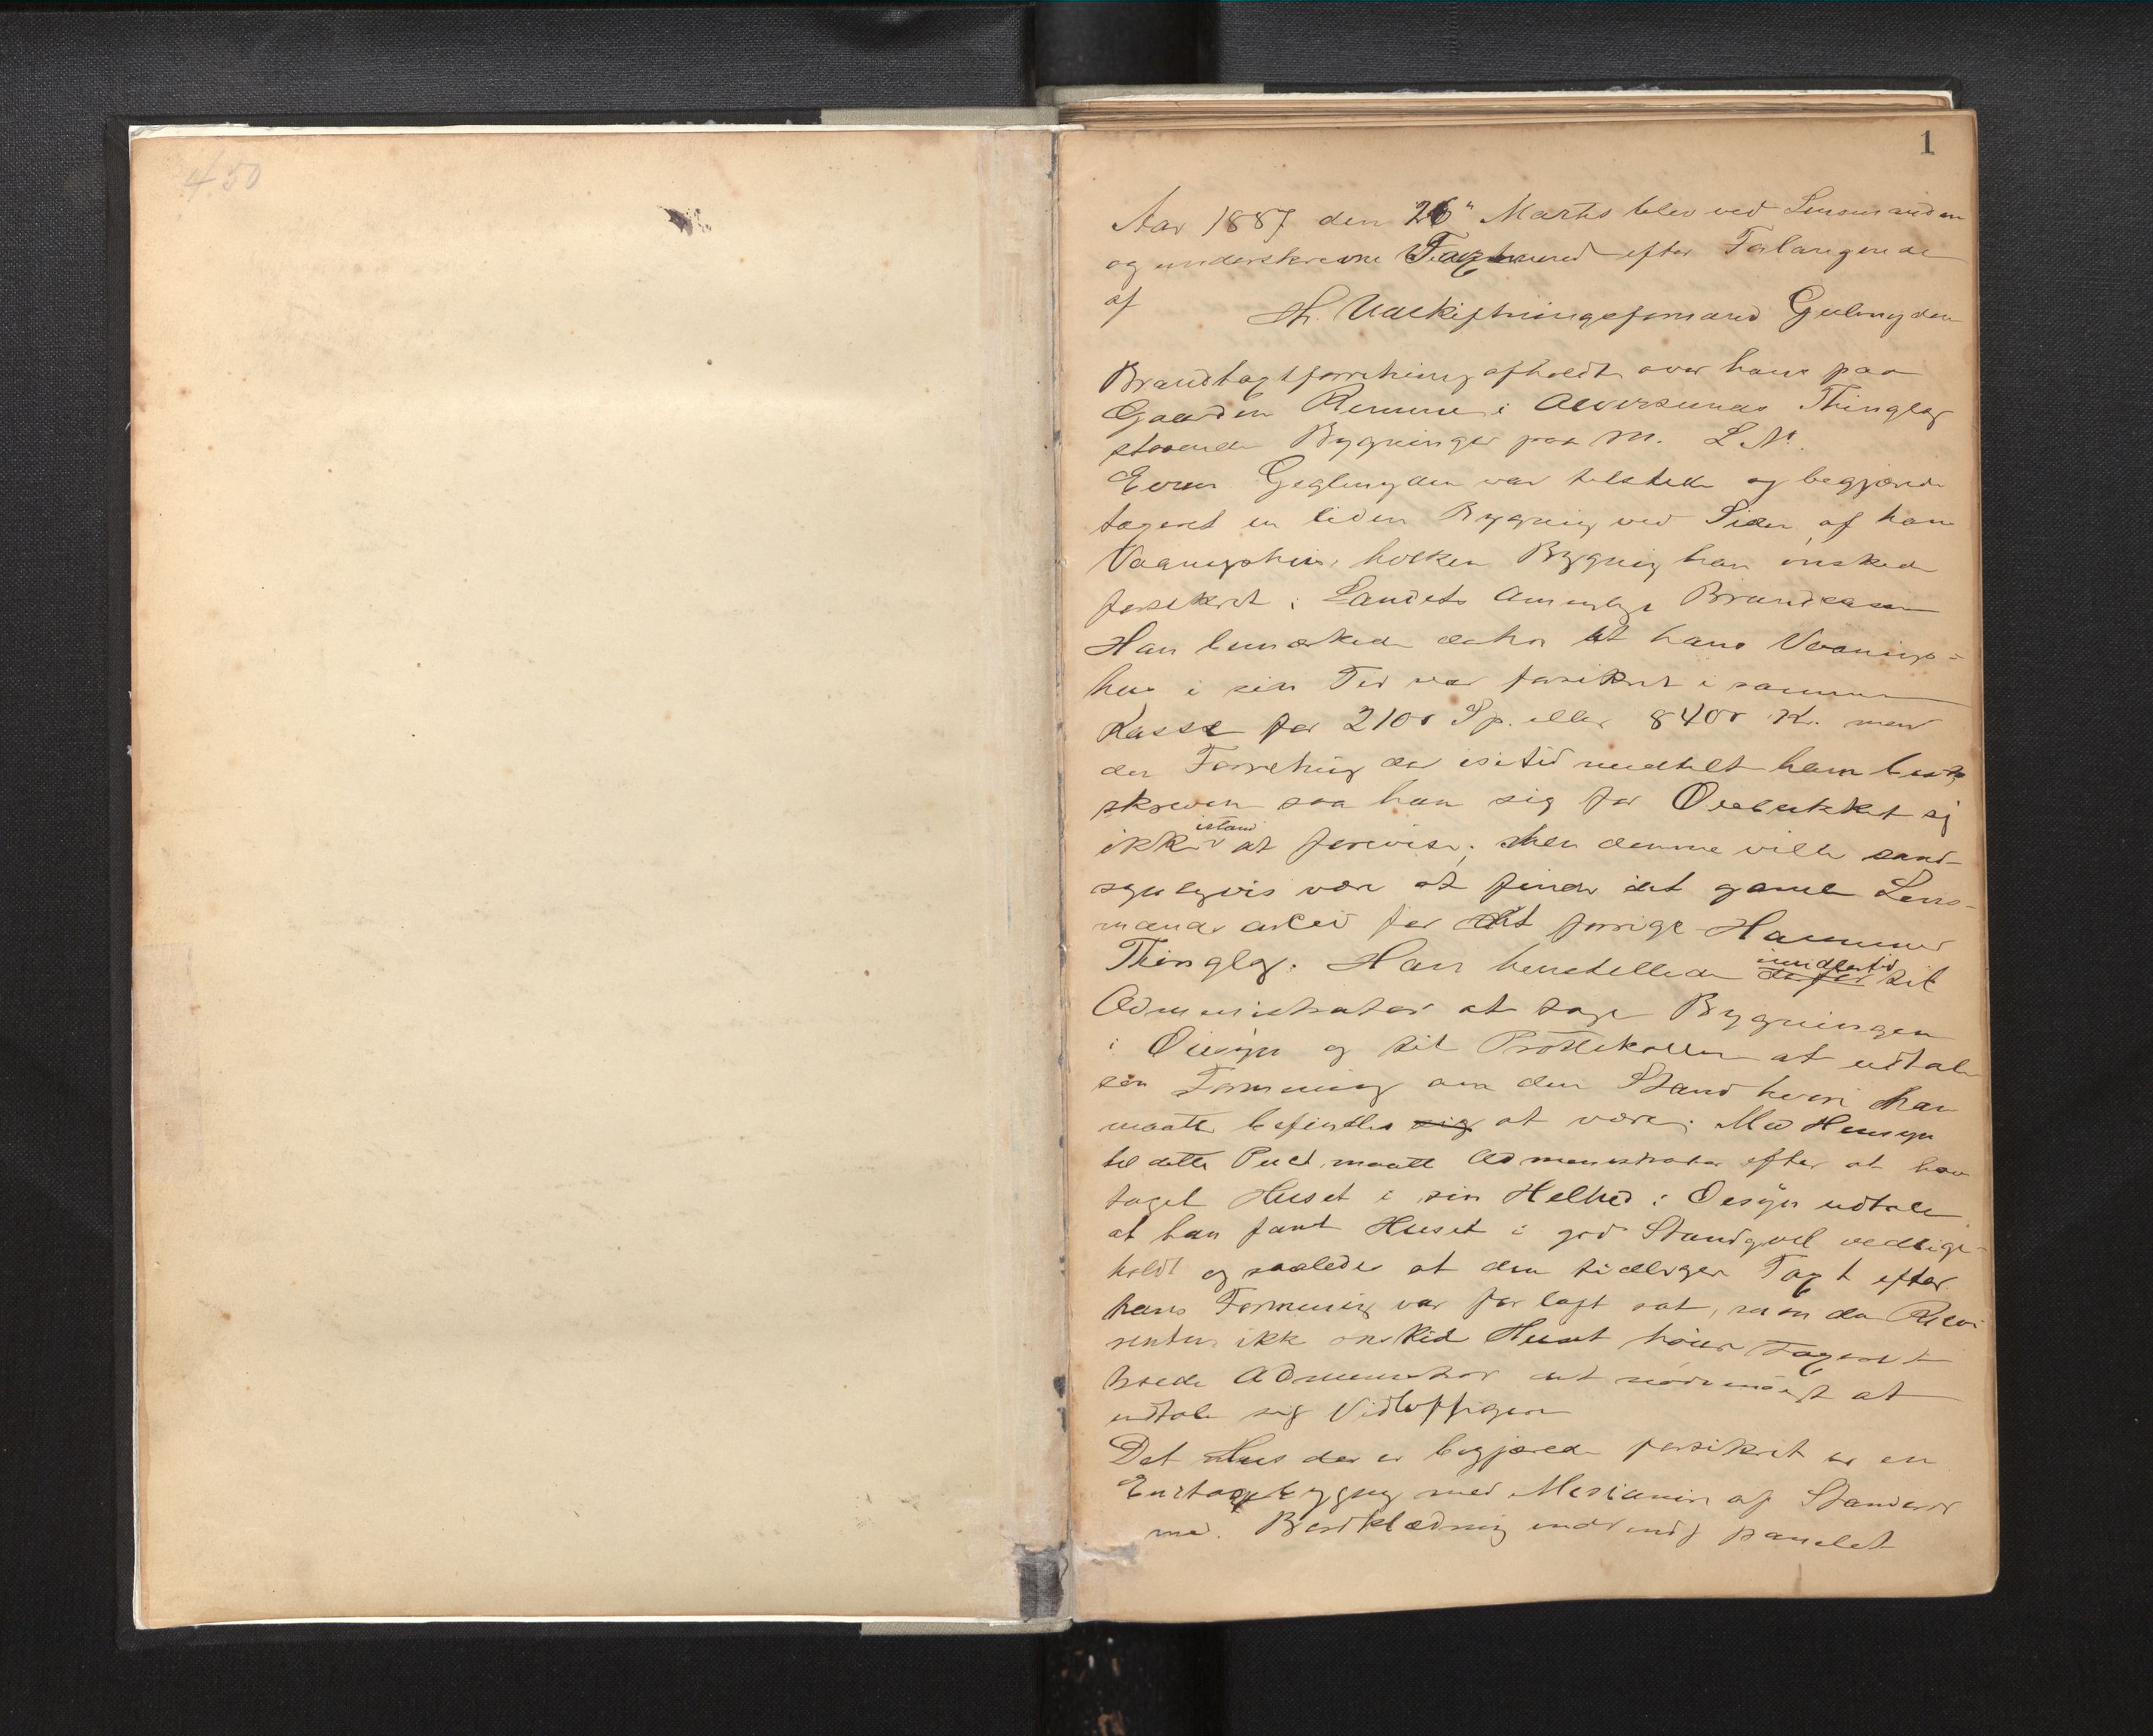 450
1
Aar 1887 den 26" Marts blev ved Lensmanden
og underskrevne Taxtmænd efter Forlangende
af Hr. Udskiftningsformand Gulmyden
Brandtaxtforretning afholdt over hans paa
Gaarden Remme i Alversunds Thinglag
staaende Bygninger paa M. L N.
Eieren var tilstede og begjærede
taxeret en liden Bygning ved Siden af hans
Vaaningshus, hvilken Bygning han ønskede
forsikret i Landets Almindelige Brandcasse
Han bemærkede derhos at hans Vaanings=
hus i sin Tid var forsikret i samme
Kasse for 2100 Sp. eller 8400 Kr. men
den Forretning der isitid meddelt ham
skreven saa han sig for Øieblikket ej
ikke istand at forevise; Men denne ville sand-
synligvis være at finde i det gamle Lens-
mands arkiv for det forrige Hammer
Thinglag. Han henstillede imidlertid til
Administrator at tage Bygningen
i Øiesyn og til Protokollen at udtale
sin Formening om den Stand hvori han
maatte befindes sig at være. Med Hensyn
til dette Punct maatte Administrator efter at have
taget Huset i sin Helhed i Øiesyn udtale
at han fandt Huset i god Stand, vel vedlige-
holdt og saaledes at den tidligere Taxt efter
hans Formening var for lavt sat, men da Rekvi
renten ikke ønsked Huset høiere Taxeret
troede Administrator det unødvendigt at
udtale sig Vidløftigere
Det Hus der er begjæred forsikret er en
Enetages Bygning med Mesianin af Standerværk
med Bordklædning indvendig panelet